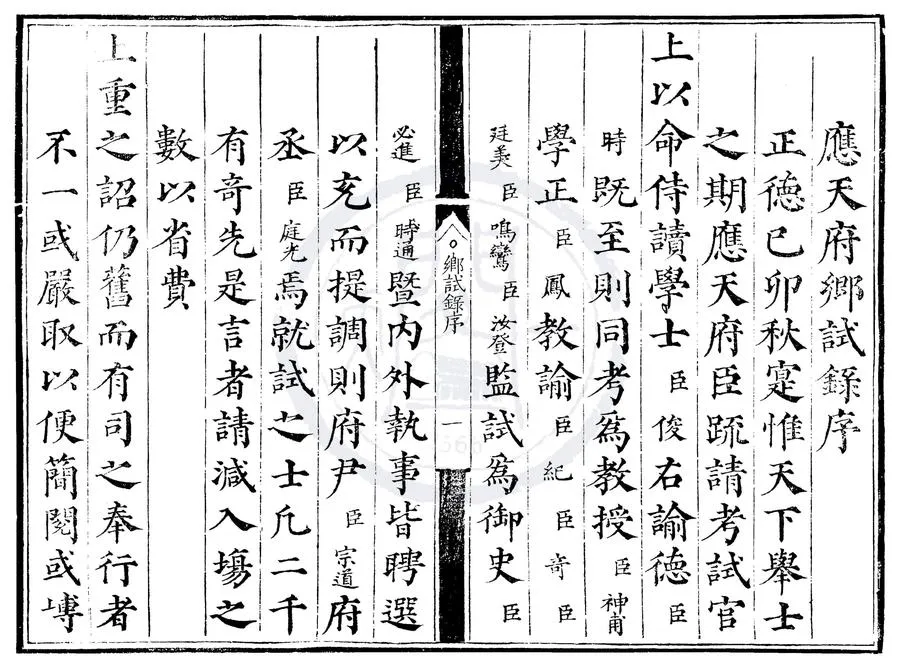 應天府鄉試錄序
正德己卯秋寔惟天下舉士
之期應天府臣䟽請考試官
上以命侍讀學士臣俊右諭德臣
時既至則同考爲教授臣神甫
學正臣鳳教諭臣紀臣竒臣
廷美臣鳴鸞臣汝登監試爲御史臣
鄉試錄序
一
必進臣時通暨內外執事皆聘選
以充而提調則府尹臣宗道府
丞臣庭光焉就試之士凡二千
有奇先是言者請減入塲之
數以省費
上重之詔仍舊而有司之奉行者
不一或嚴取以便簡閱或塼